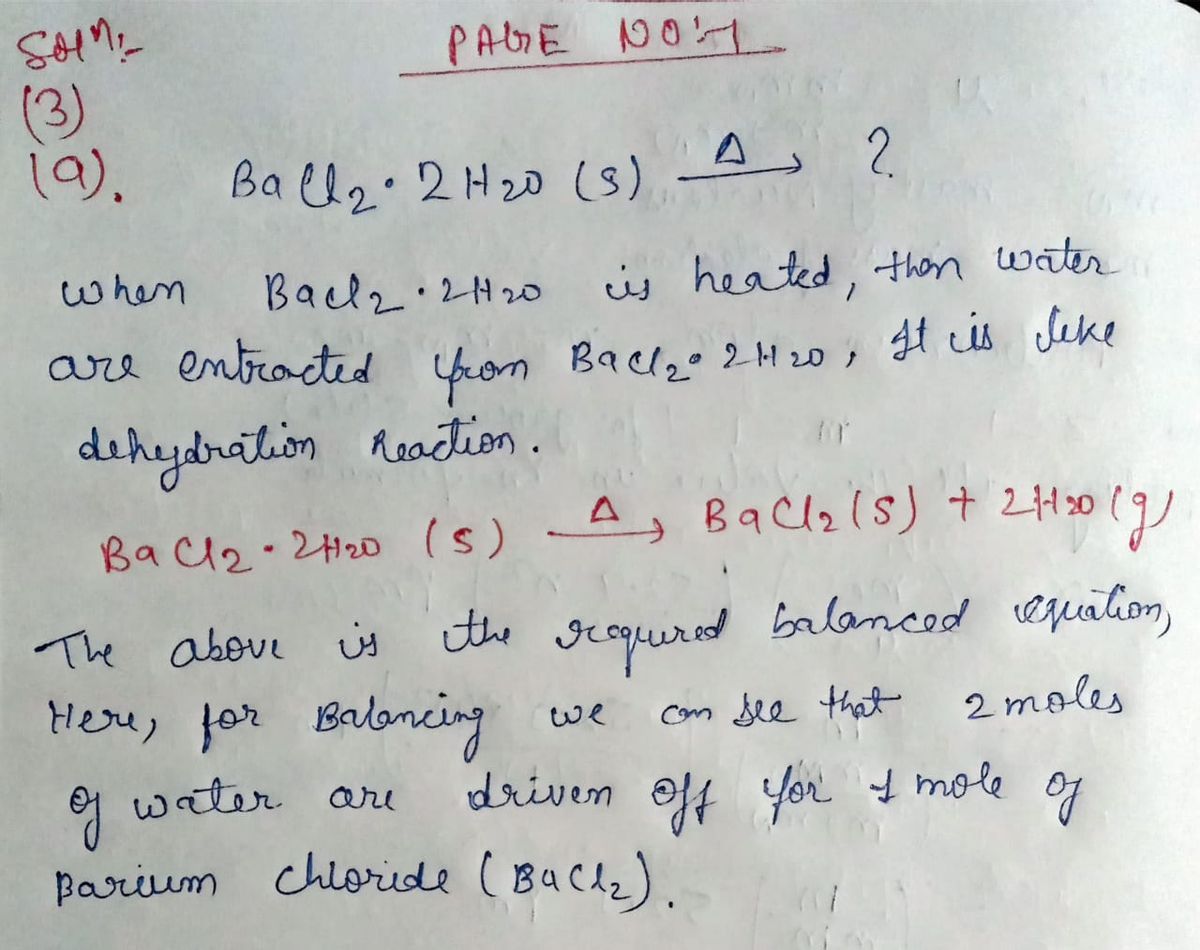 Solⁿ:-
PAGE NO:-1
(3)
(a). BaCl₂·2H₂O (s) —Δ→ ?
when BaCl₂·2H₂O is heated, then water
are extracted from BaCl₂·2H₂O, It is like
dehydration Reaction.
BaCl₂·2H₂O (s) —Δ→ BaCl₂(s) + 2H₂O(g)
The above is the required balanced equation,
Here, for Balancing we can see that 2 moles
of water are driven off for 1 mole of
Barium chloride (BaCl₂).